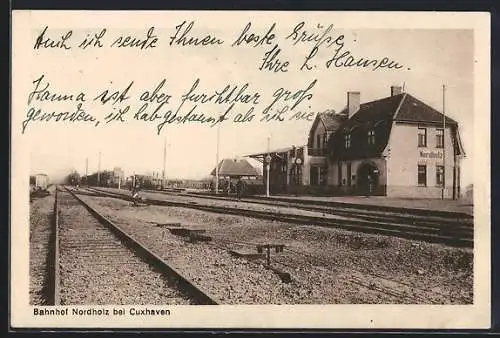 Auch ich sende Ihnen beste Grüße
Ihre L. Hansen.
Hanna ist aber furchtbar groß
geworden, ich hab gestaunt als ich sie
Nordholz
Bahnhof Nordholz bei Cuxhaven